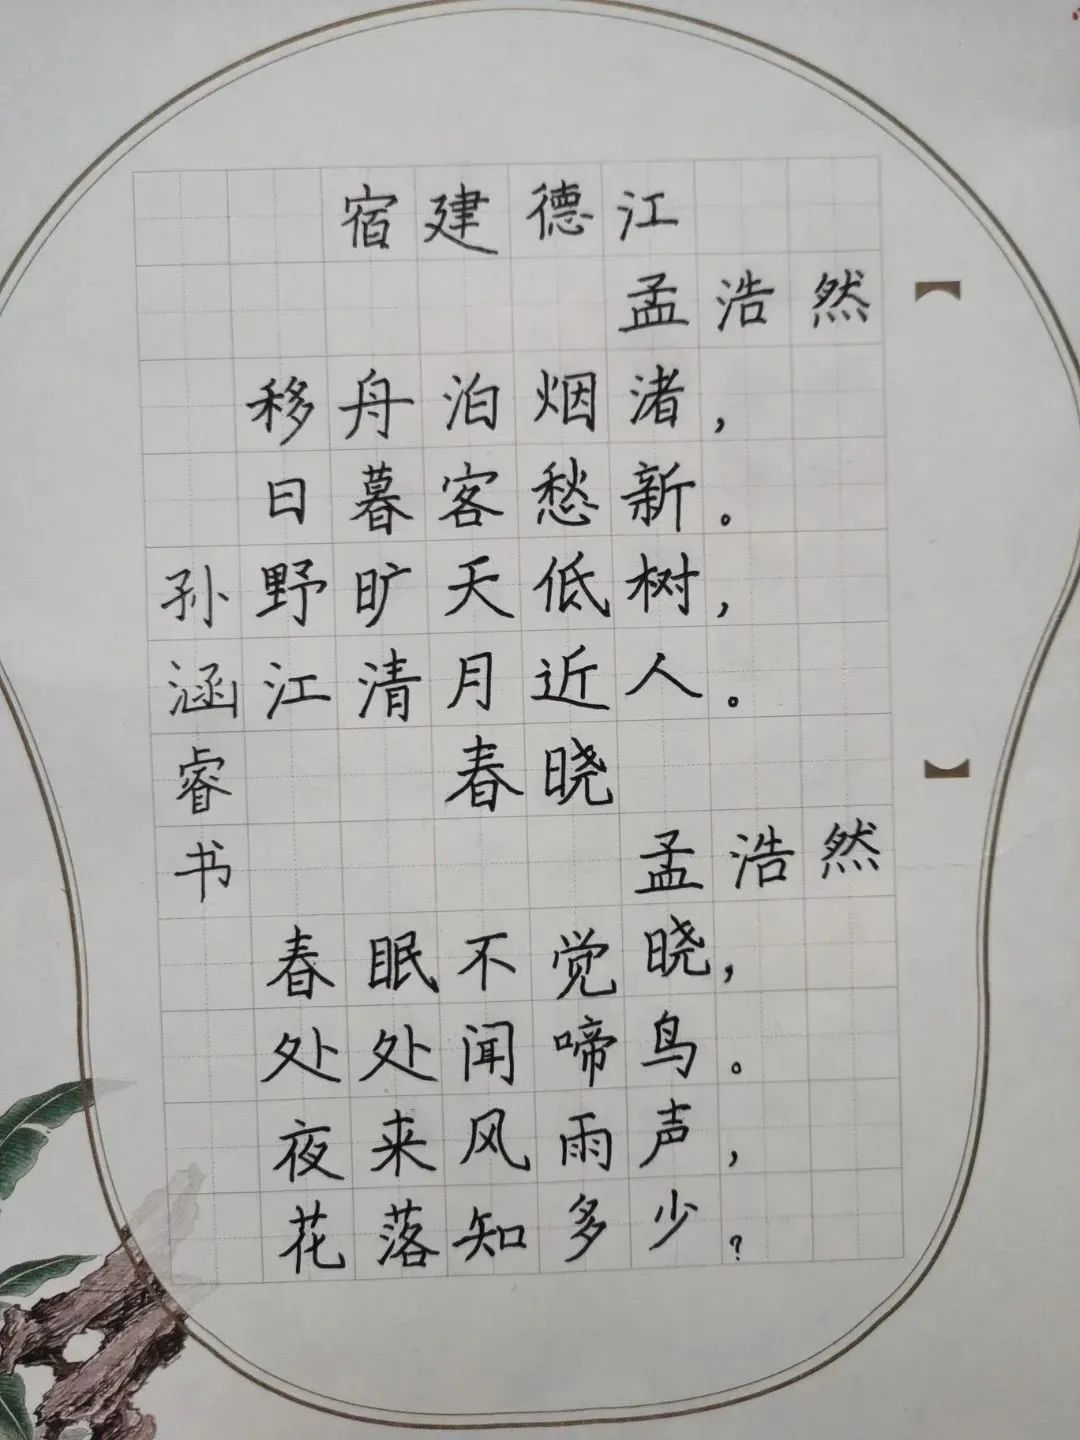 宿建德江
孟浩然
移舟泊烟渚，
日暮客愁新。
野旷天低树，
江清月近人。
春晓
孟浩然
春眠不觉晓，
处处闻啼鸟。
夜来风雨声，
花落知多少？
孙涵睿书